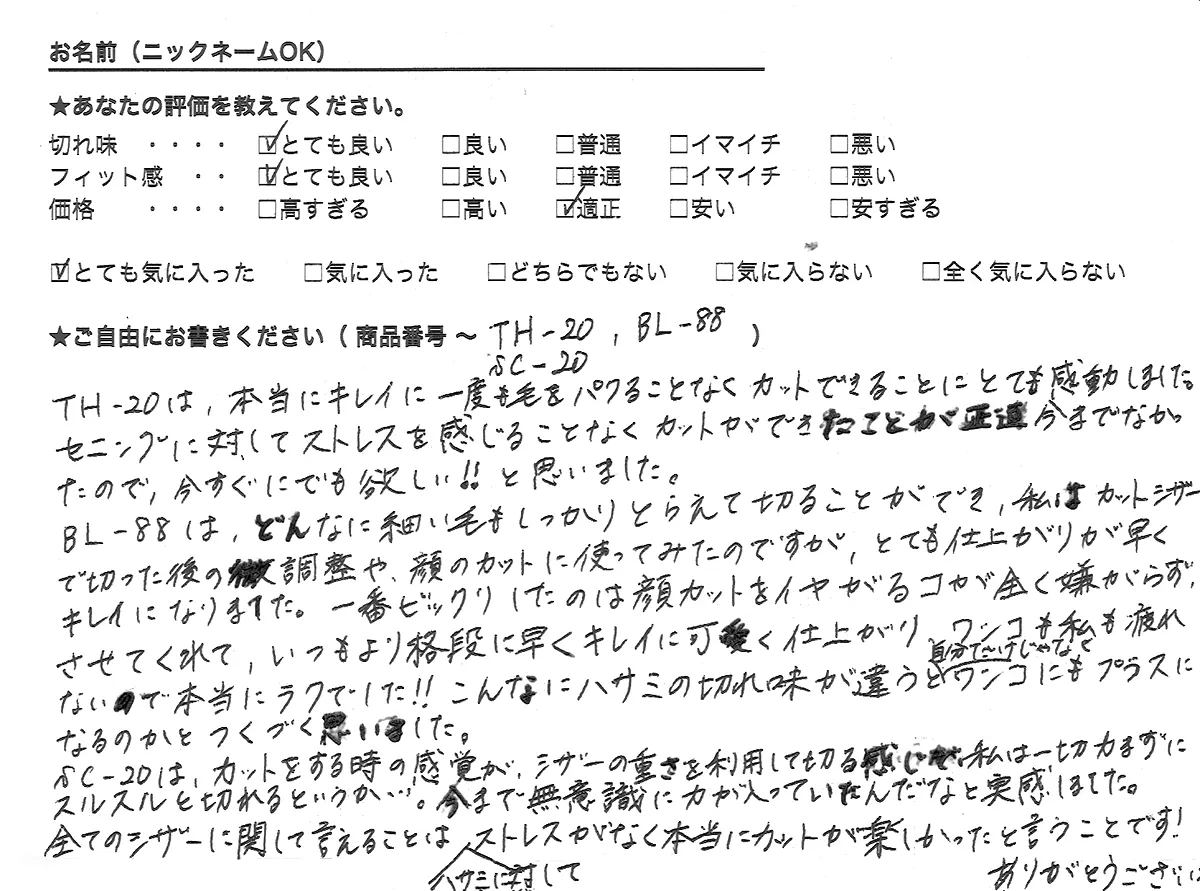 お名前（ニックネームOK）
★あなたの評価を教えてください。
切れ味 ・・・・ ☑とても良い □良い □普通 □イマイチ □悪い
フィット感 ・・ ☑とても良い □良い □普通 □イマイチ □悪い
価格 ・・・・ □高すぎる □高い ☑適正 □安い □安すぎる
☑とても気に入った □気に入った □どちらでもない □気に入らない □全く気に入らない
★ご自由にお書きください（ 商品番号 ～ TH-20 , BL-88 ）
SC-20
TH-20は, 本当にキレイに一度も毛をパクることなくカットできることにとても感動しました。
セニングに対してストレスを感じることなくカットができたことが正直今までなかっ
たので, 今すぐにでも欲しい!! と思いました。
BL-88は, どんなに細い毛もしっかりとらえて切ることができ, 私はカットシザー
で切った後の微調整や、顔のカットに使ってみたのですが, とても仕上がりが早く
キレイになりました。一番ビックリしたのは顔カットをイヤがるコが全く嫌がらず,
させてくれて, いつもより格段に早くキレイに可愛く仕上がり ワンコも私も疲れ
ないので本当にラクでした!! こんなにハサミの切れ味が違うと自分だけじゃなくてワンコにもプラスに
なるのかとつくづく思いました。
SC-20は, カットをする時の感覚が, シザーの重さを利用して切る感じで, 私は一切力まずに
スルスルと切れるというか…。今まで無意識に力が入っていたんだなと実感しました。
全てのシザーに関して言えることは ハサミに対してストレスがなく本当にカットが楽しかったと言うことです!
ありがとうござい